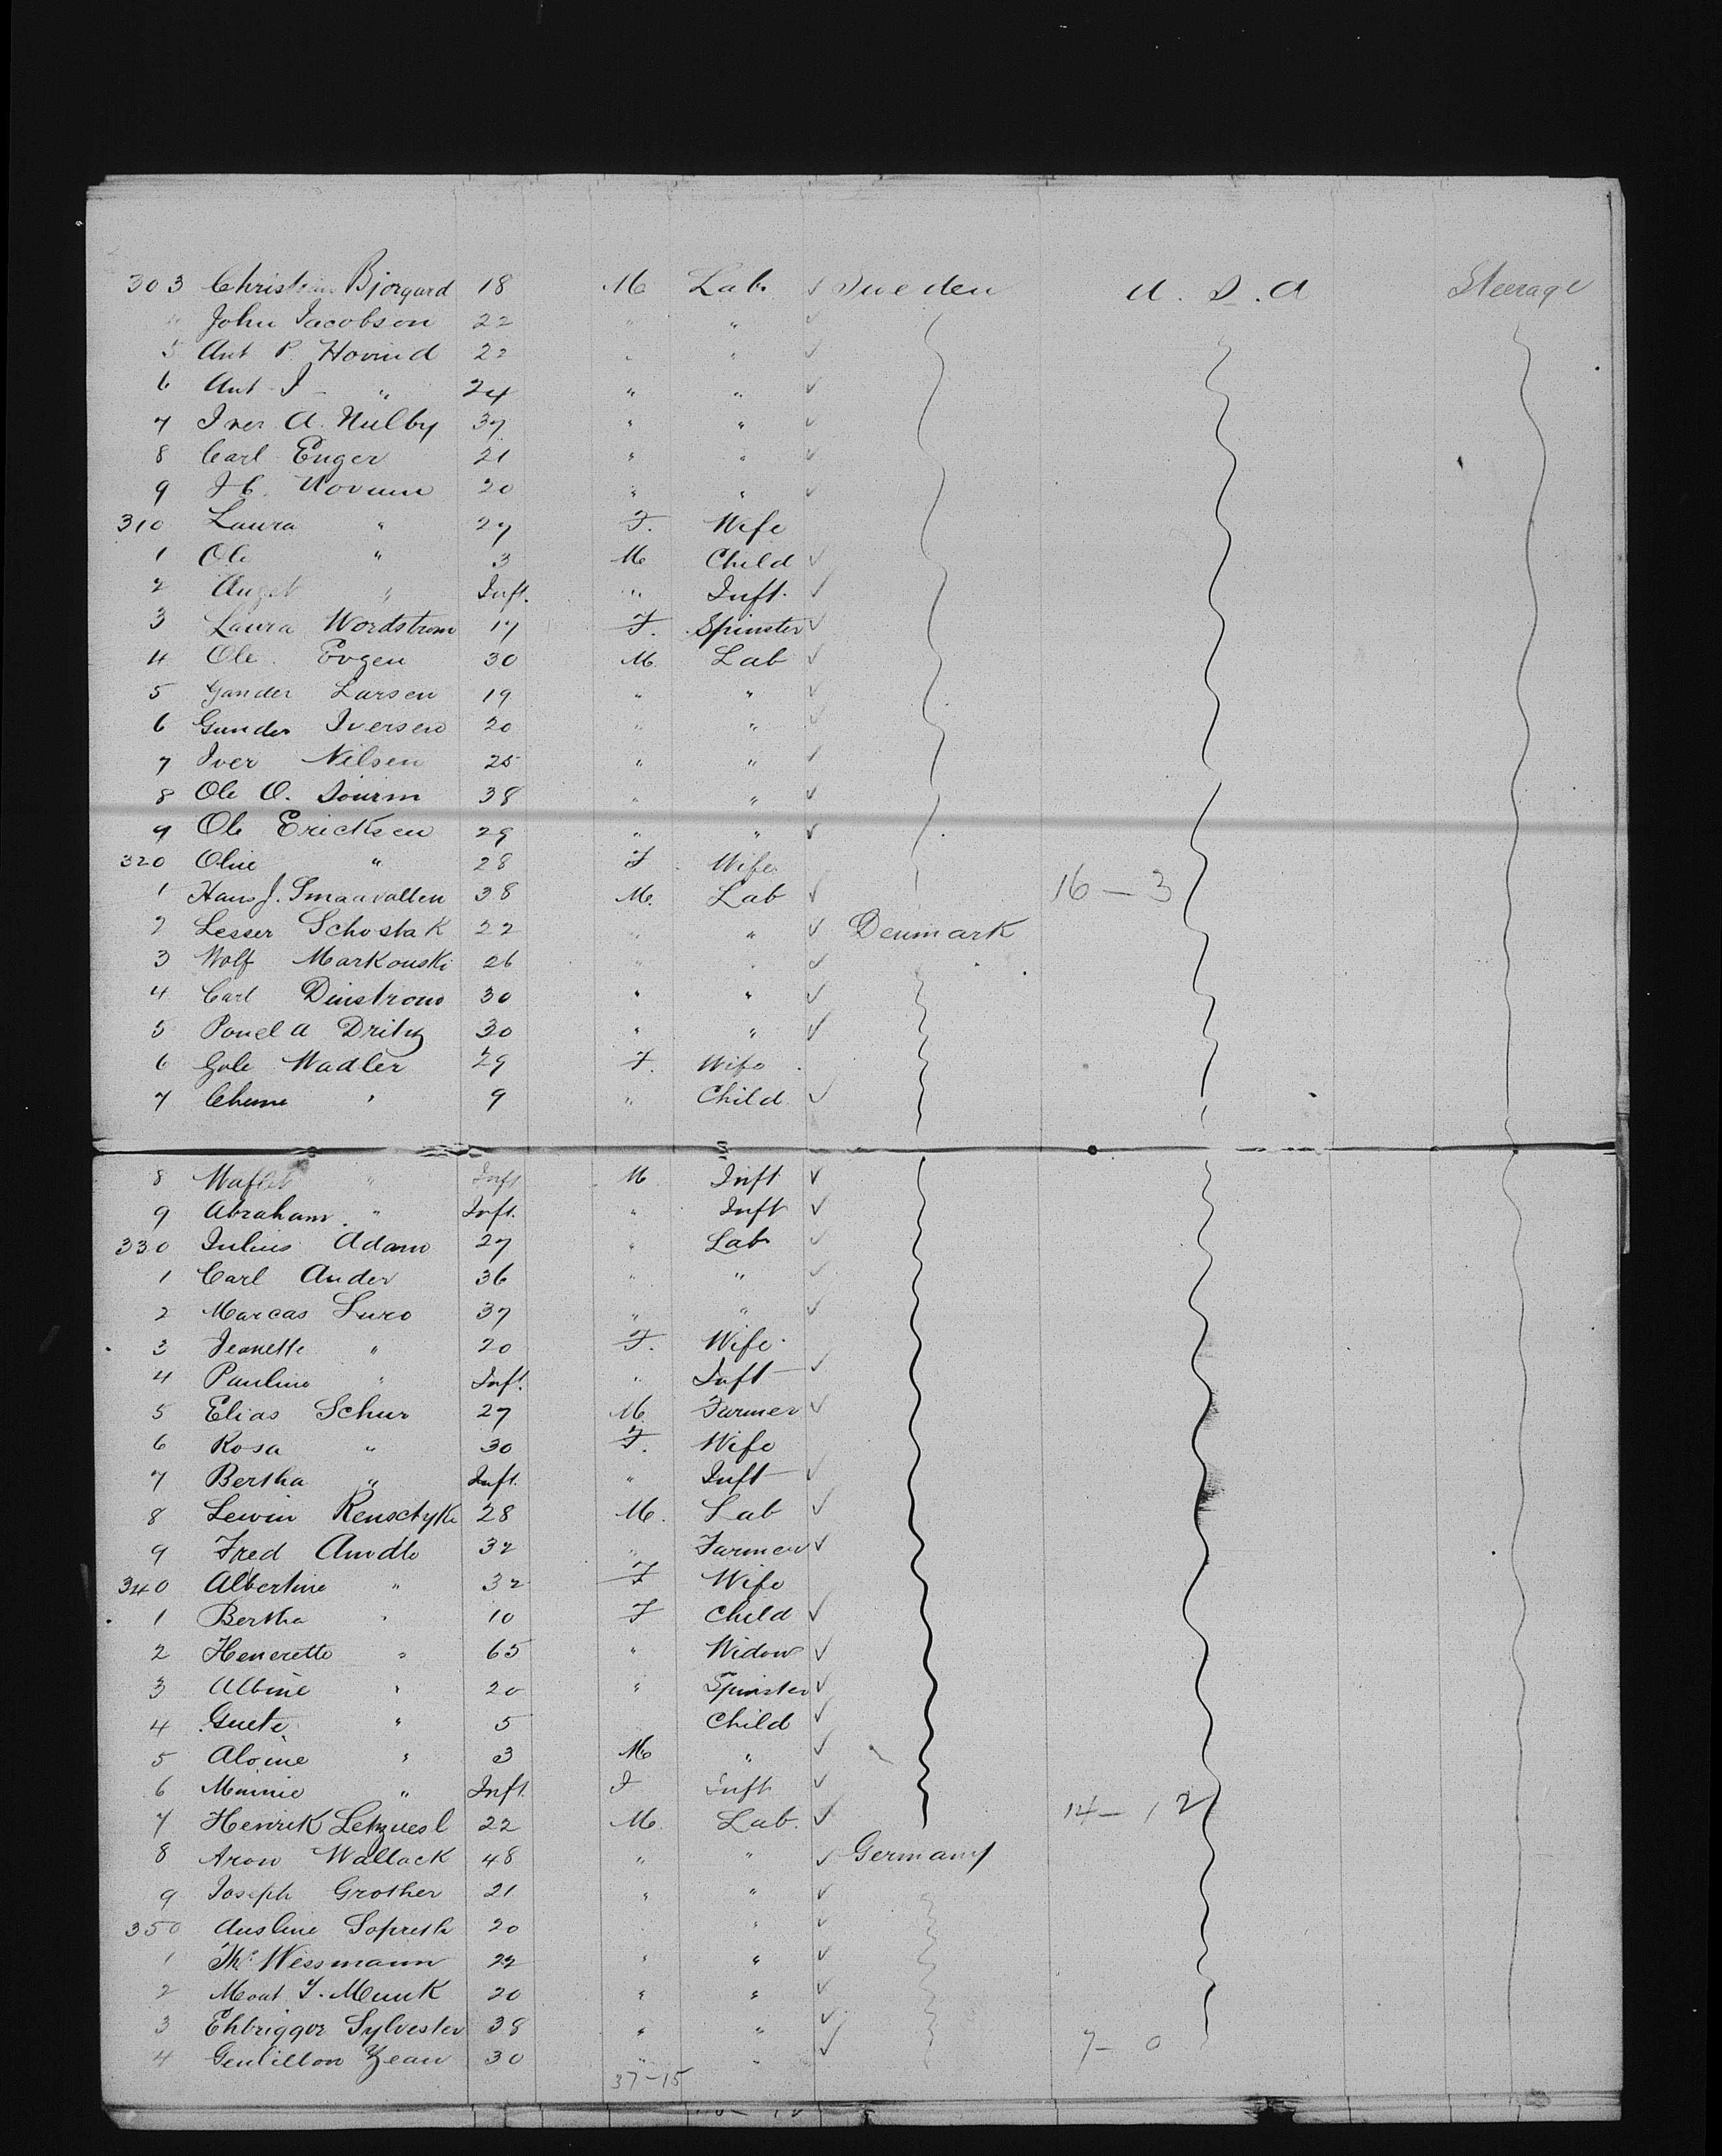 303 Christian Bjorgard 18 M Lab ✓ Sweden U.S.A Steerage
4 John Jacobson 22 " " ✓
5 Ant P. Hovind 22 " " ✓
6 Ant J " 24 " " ✓
7 Iver A. Hulby 37 " " ✓
8 Carl Enger 21 " " ✓
9 J C. 20 " " ✓
310 Laura " 27 F. Wife
1 Ole " 3 M Child ✓
2 " Inft. " Inft. ✓
3 Laura Wordstrom 17 F. Spinster ✓
4 Ole Evgen 30 M Lab ✓
5 Gander Larsen 19 " " ✓
6 Gunder Iversen 20 " " ✓
7 Iver Nilsen 25 " " ✓
8 Ole O. 38 " " ✓
9 Ole Ericksen 29 " " ✓
320 Oline " 28 F Wife
1 Hans J. Smaavollen 38 M. Lab ✓ 16 – 3
2 Lesser Schostak 22 " " ✓ Denmark
3 Wolf Markouski 26 " " ✓
4 Carl Dinstrom 30 " " ✓
5 30 " " ✓
6 Gole Wadler 29 F. Wife
7 " 9 " Child ✓
8 " Inft M Inft ✓
9 Abraham " Inft. " Inft ✓
330 Julius Adam 27 " Lab ✓
1 Carl Ander 36 " " ✓
2 Marcas Luro 37 " " ✓
3 Jeanette " 20 F. Wife
4 Pauline " Inft. " Inft ✓
5 Elias Schur 27 M Farmer ✓
6 Rosa " 30 F. Wife
7 Bertha " Inft. " Inft ✓
8 Lewin Rensctyke 28 M. Lab ✓
9 Fred Amdto 32 " Farmer ✓
340 Albertine " 32 F Wife
1 Bertha " 10 F Child ✓
2 Henerette " 65 " Widow ✓
3 Albine " 20 " Spinster ✓
4 " 5 Child ✓
5 Aloine " 3 M " ✓
6 Minnie " Inft. F Inft ✓
7 Henrik 22 M. Lab. ✓ 14 – 12
8 Aron Wallack 48 " " ✓ Germany
9 Joseph Grother 21 " " ✓
350 20 " ✓
1 Wessmann 22 " " ✓
2 Munk 20 " " ✓
3 Sylvester 38 " " ✓
4 30 " " ✓ 7 – 0
37–15